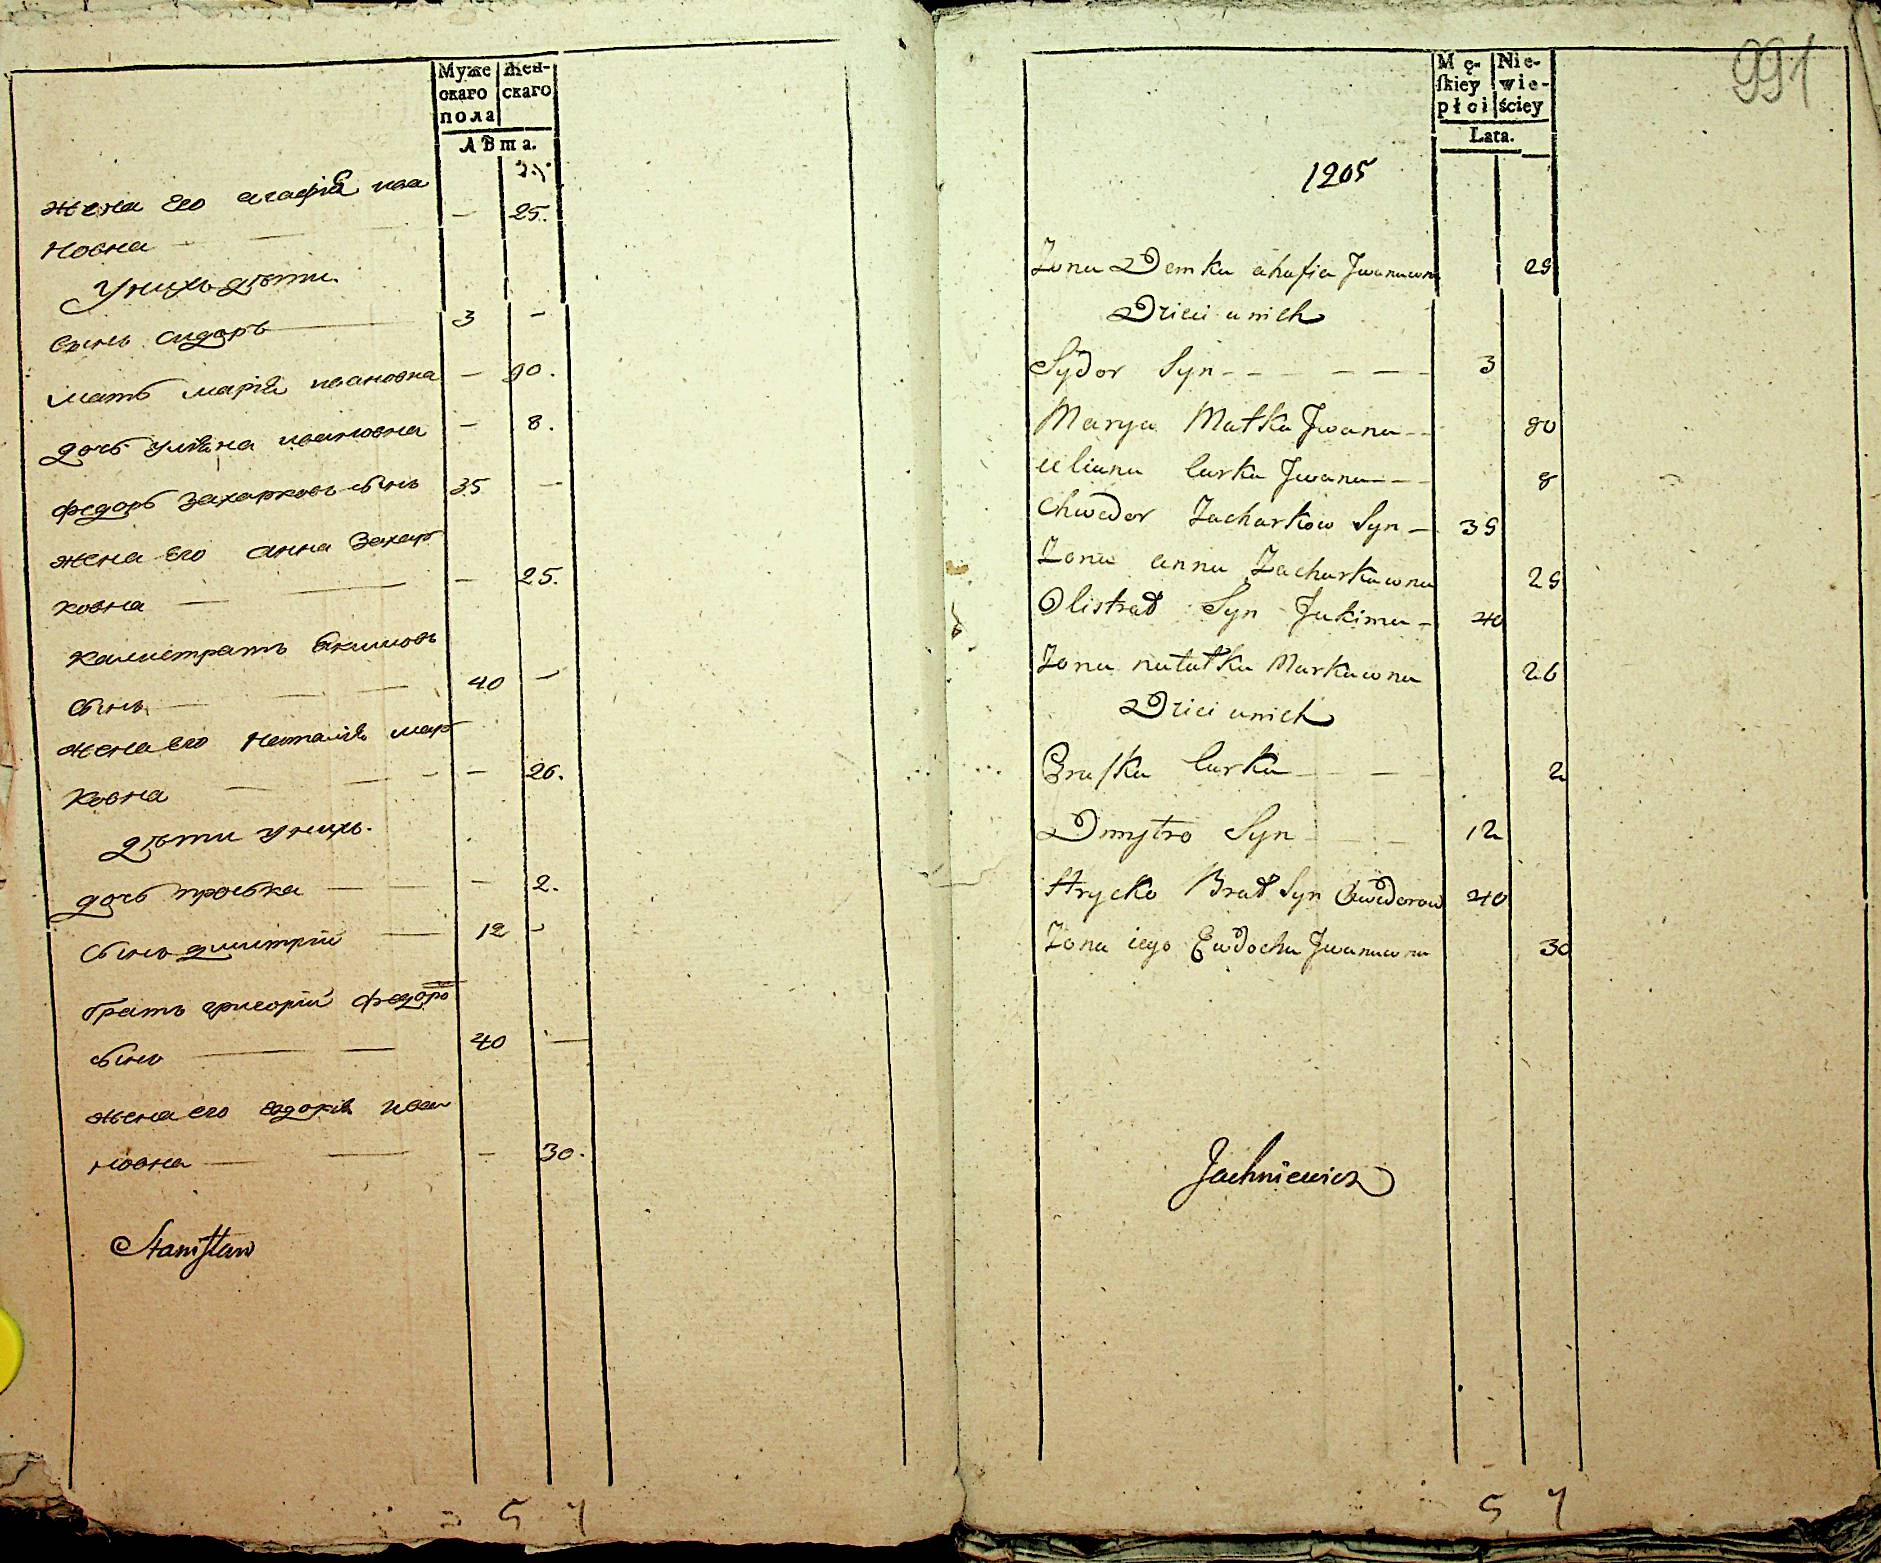 Муже Жен-
скаго скаго
пола
Лѣта.
жена Его агафія ива
новна — 25.
У нихъ дѣти
сынъ сидоръ 3 -
мать марія ивановна — 90.
дочь уліяна ивановна — 8.
федоръ Захарковъ сынъ 35 —
жена Его анна Захар
ковна — 25.
Калистратъ Екимовъ
сынъ 40 —
жена его Наталія мар
ковна — 26.
дѣти у нихъ.
дочь проська — 2.
сынъ димитрій 12 -
братъ григорій федоро
сынъ 40 —
жена его евдокія ива
новна — 30.
Stanisław
5 7
991
Mę- Nie-
skiey wie-
płci ściey
Lata.
1205
Żona Demka ahafia Jwanawna 25
Dzieci u nich
Sydor Syn 3
Marya Matka Jwana 90
uliana Curka Jwana 8
Chwedor Zacharkow Syn 35
Żona anna Zacharkawna 25
Olistrat Syn Jakima 40
Żona natałka Markawna 26
Dzieci u nich
Praska Curka 2
Dmytro Syn 12
Hrycko Brat Syn Chwedorow 40
Żona iego Ewdocha Jwanawna 30
Jachniewicz
5 7